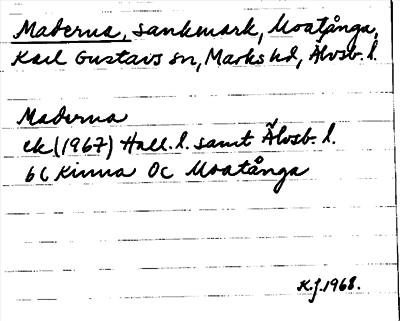 Maderna, sankmark, Moatånga,
Karl Gustavs sn, Marks hd, Älvsb. l.
Maderna
ek (1967) Hall. l. samt Älvsb. l.
6C Kinna 0C Moatånga
K.J. 1968.